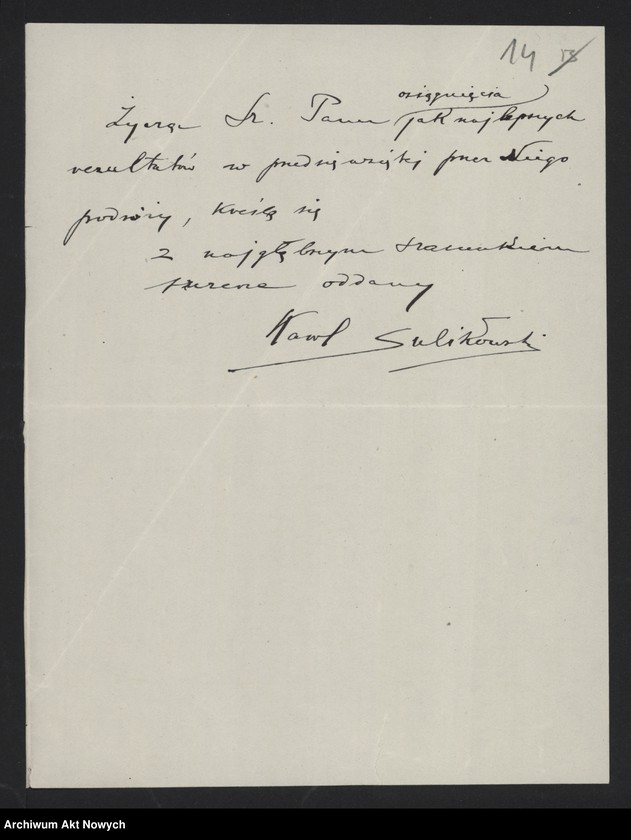 14
osiągnięcia
Życząc Sz. Panu jak najlepszych
rezultatów w przedsięwziętej przez Niego
podróży, kreślę się
z najgłębszym szacunkiem
szczerze oddany
Karol Sulikowski
Archiwum Akt Nowych